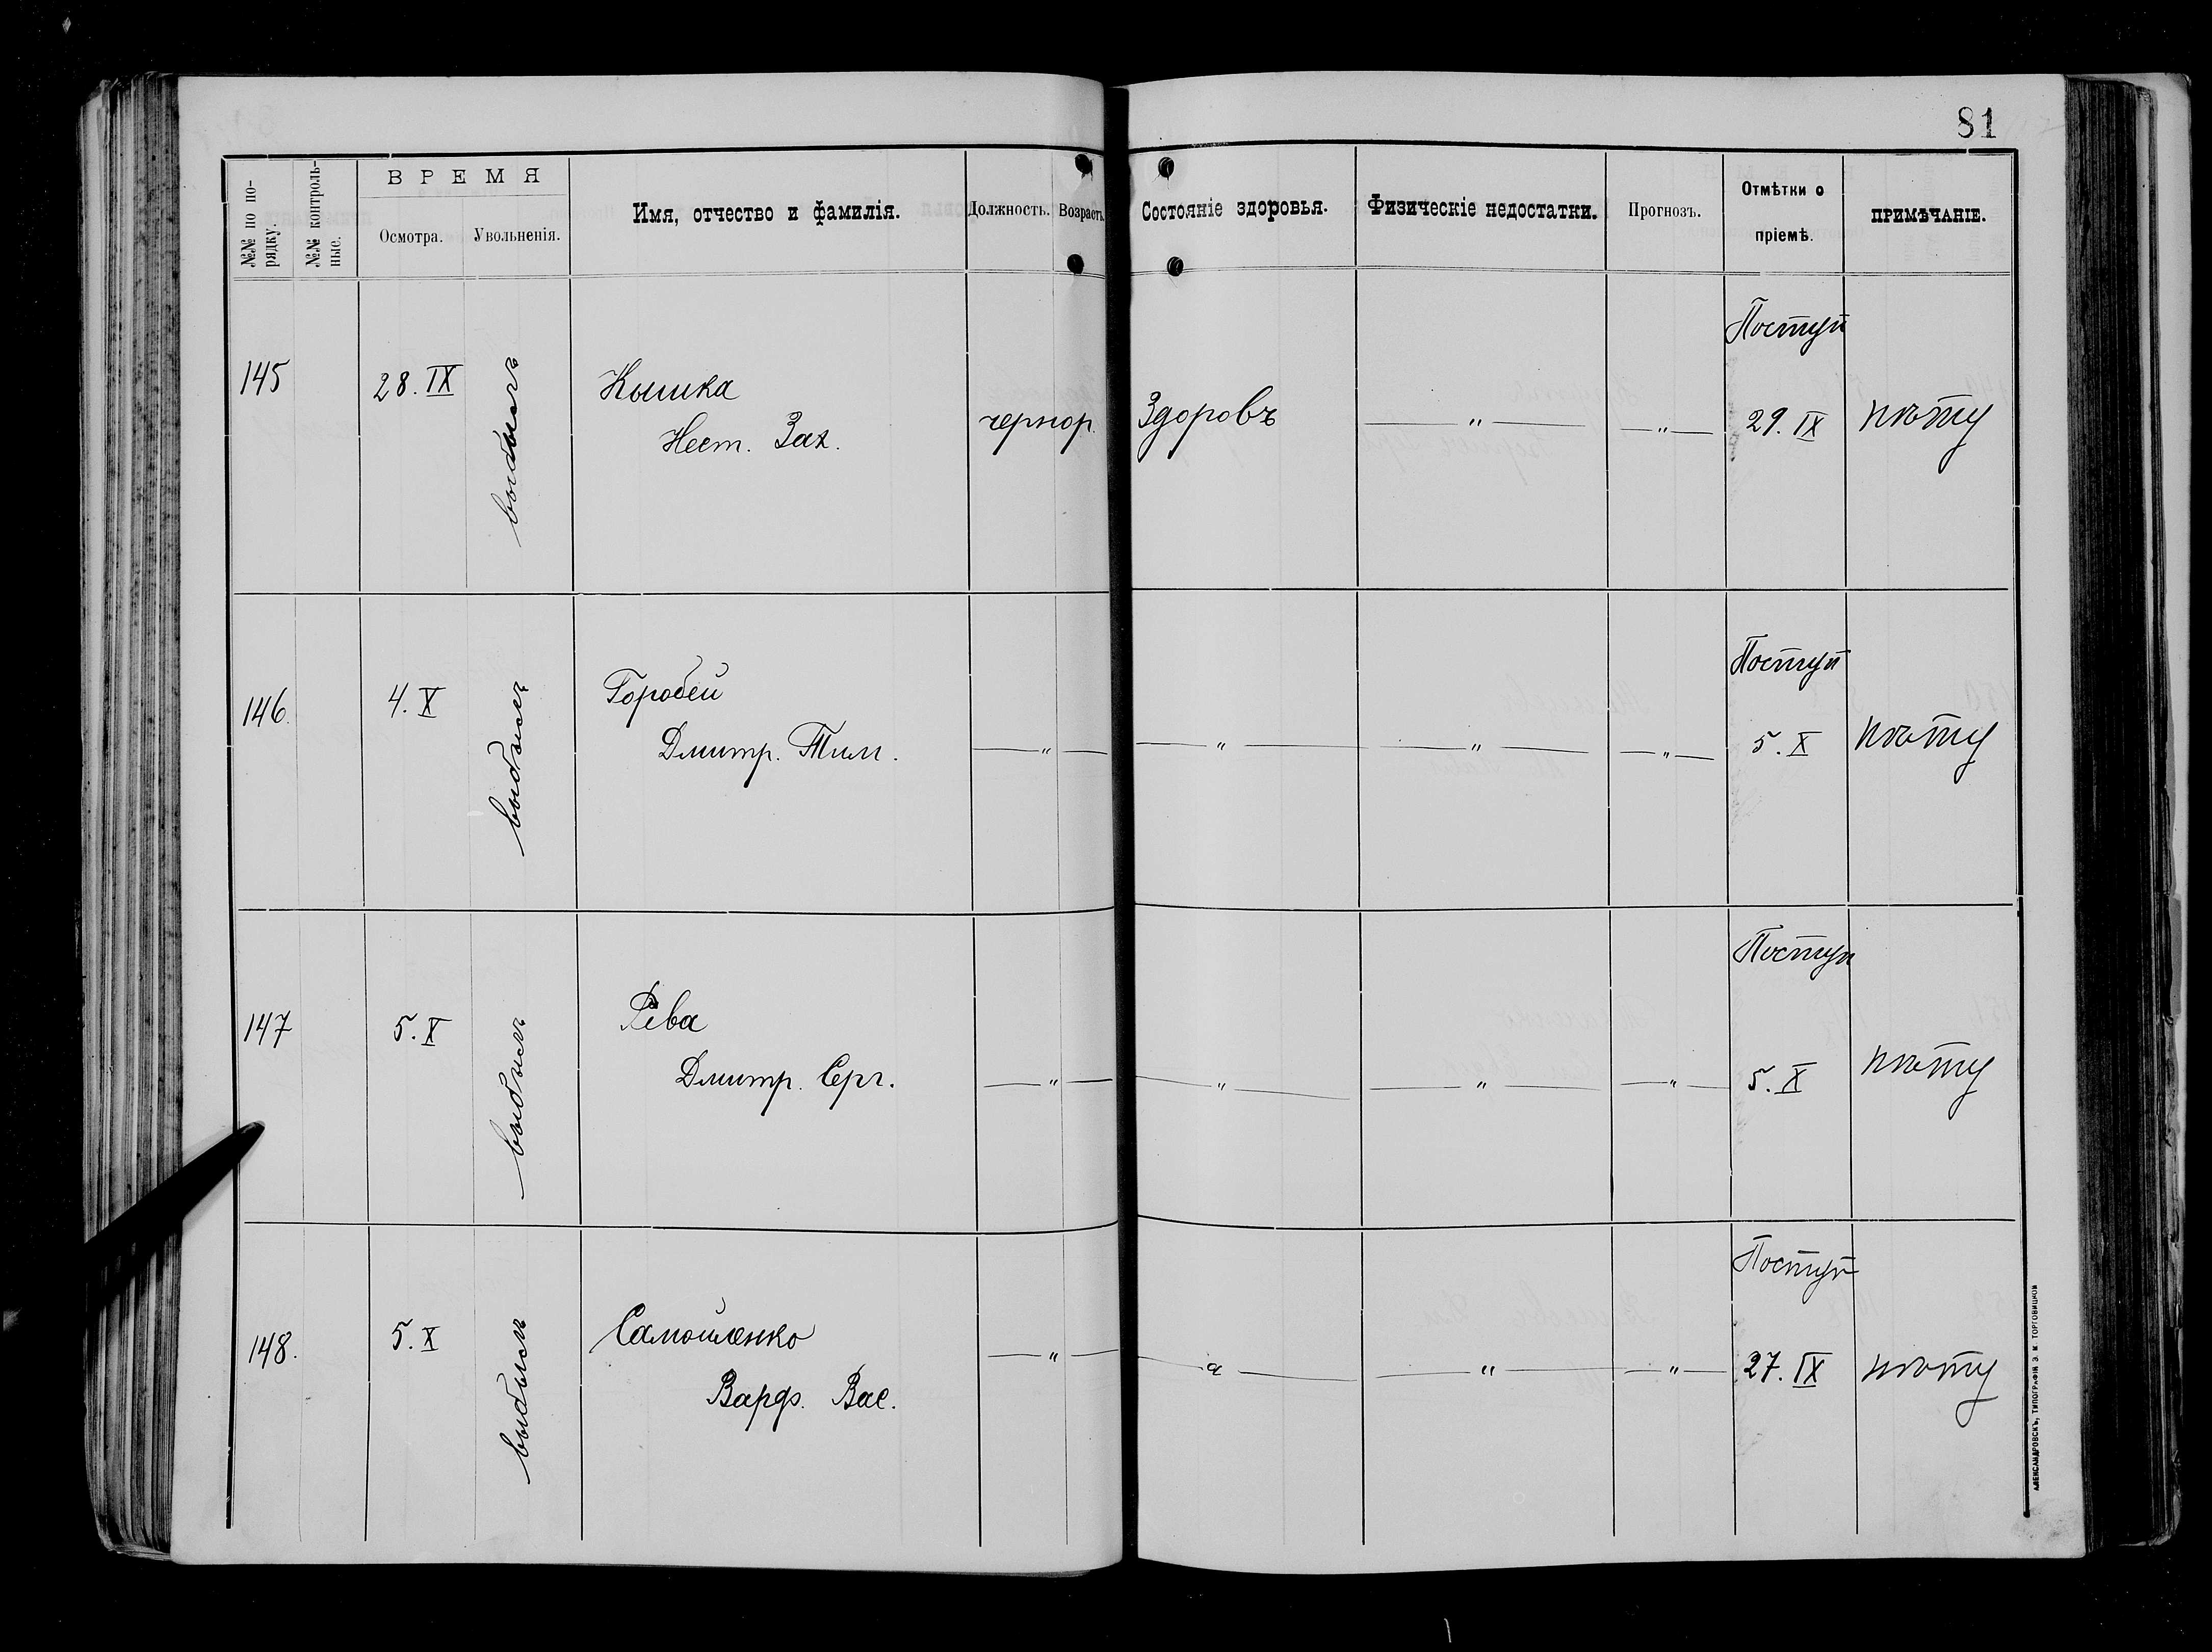 81
№№ по по-
рядку.
№№ контроль-
ные.
ВРЕМЯ
Осмотра.
Увольненія.
Имя, отчество и фамилія.
Должность.
Возрастъ.
Состояніе здоровья.
Физическіе недостатки.
Прогнозъ.
Отмѣтки о
пріемѣ.
ПРИМѢЧАНІЕ.
145
28. IX
выбылъ
Кышка
Нест. Зах.
чернор.
Здоровъ
— " —
— " —
Поступ
29. IX
нѣту
146.
4. X
выбылъ
Горобей
Дмитр. Тим.
— " —
— " —
— " —
— " —
Поступ
5. X
нѣту
147
5. X
выбылъ
Рева
Дмитр. Серг.
— " —
— " —
— " —
— " —
Поступ
5. X
нѣту
148.
5. X
выбылъ
Самойленко
Вас.
— " —
— " —
— " —
— " —
Поступ
27. IX
нѣту
АЛЕКСАНДРОВСКЪ, ТИПОГРАФІЯ Э. М. ТОРГОВИЦКОЙ